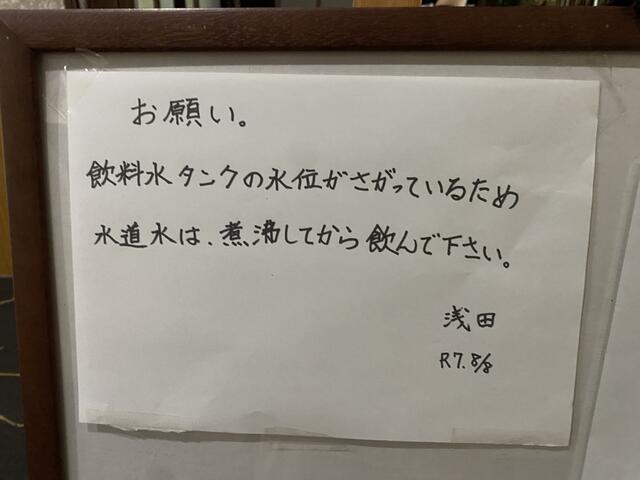 お願い。
飲料水タンクの水位がさがっているため
水道水は、煮沸してから飲んで下さい。
浅田
R7. 8/8